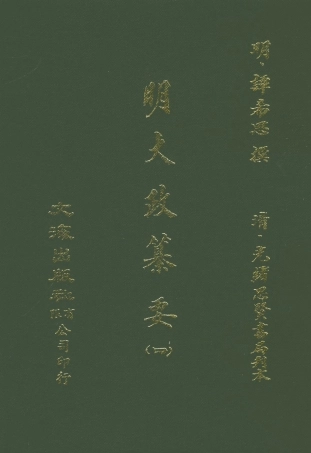 明·譚希思撰
清·光緒思賢書局刊本
明大政纂要(四)
文海出版社有限公司印行